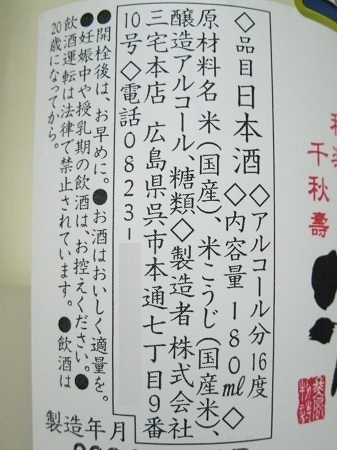 千秋壽
◇品目日本酒◇アルコール分16度
原材料名米(国産)、米こうじ(国産米)、
◇内容量180ml◇
醸造アルコール、糖類◇製造者 株式会社
三宅本店 広島県呉市本通七丁目9番
10号◇電話0823-
●開栓後は、お早めに。●お酒はおいしく適量を。
●妊娠中や授乳期の飲酒は、お控えください。●
飲酒運転は法律で禁止されています。●飲酒は
20歳になってから。
製造年月